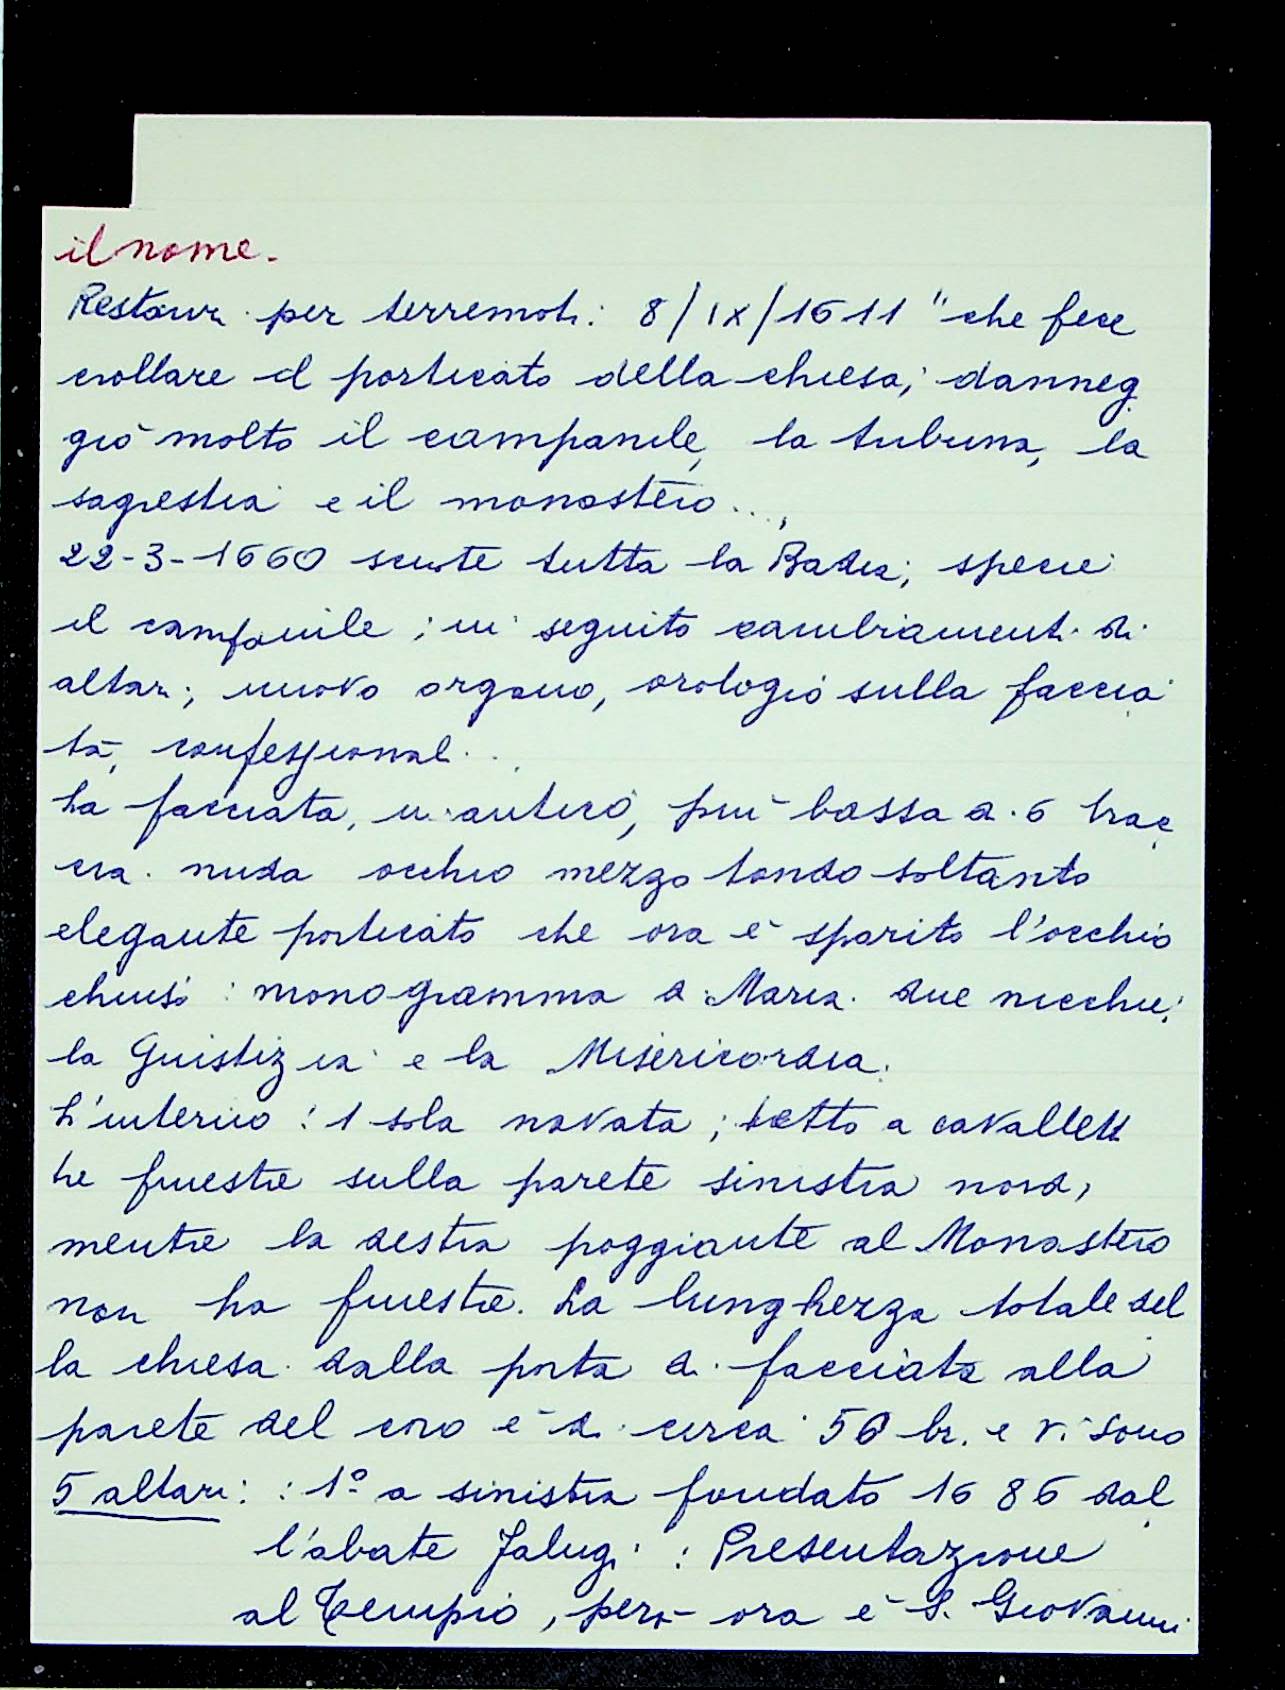 il nome.
Restauri per terremoti: 8/IX/1611 "che fece
crollare il porticato della chiesa; danneg
giò molto il campanile, la tribuna, la
sagrestia e il monastero...,
22-3-1660 scuote tutta la Badia; specie
il campanile; in seguito cambiamenti di
altari; nuovo organo, orologio sulla faccia
ta, confessionali...
La facciata, in antico, più bassa di 6 brac
cia. nuda occhio mezzo tondo soltanto
elegante porticato che ora è sparito l'occhio
chiuso: monogramma di Maria. due nicchie:
la Giustizia e la Misericordia.
L'interno: 1 sola navata; tetto a cavalletti
le finestre sulla parete sinistra nord,
mentre la destra poggiante al Monastero
non ha finestre. La lunghezza totale del
la chiesa dalla porta di facciata alla
parete del coro è di circa 50 br. e vi sono
5 altari: : 1º a sinistra fondato 1686 dal
l'abate Falugi: Presentazione
al Tempio, però ora è S. Giovanni